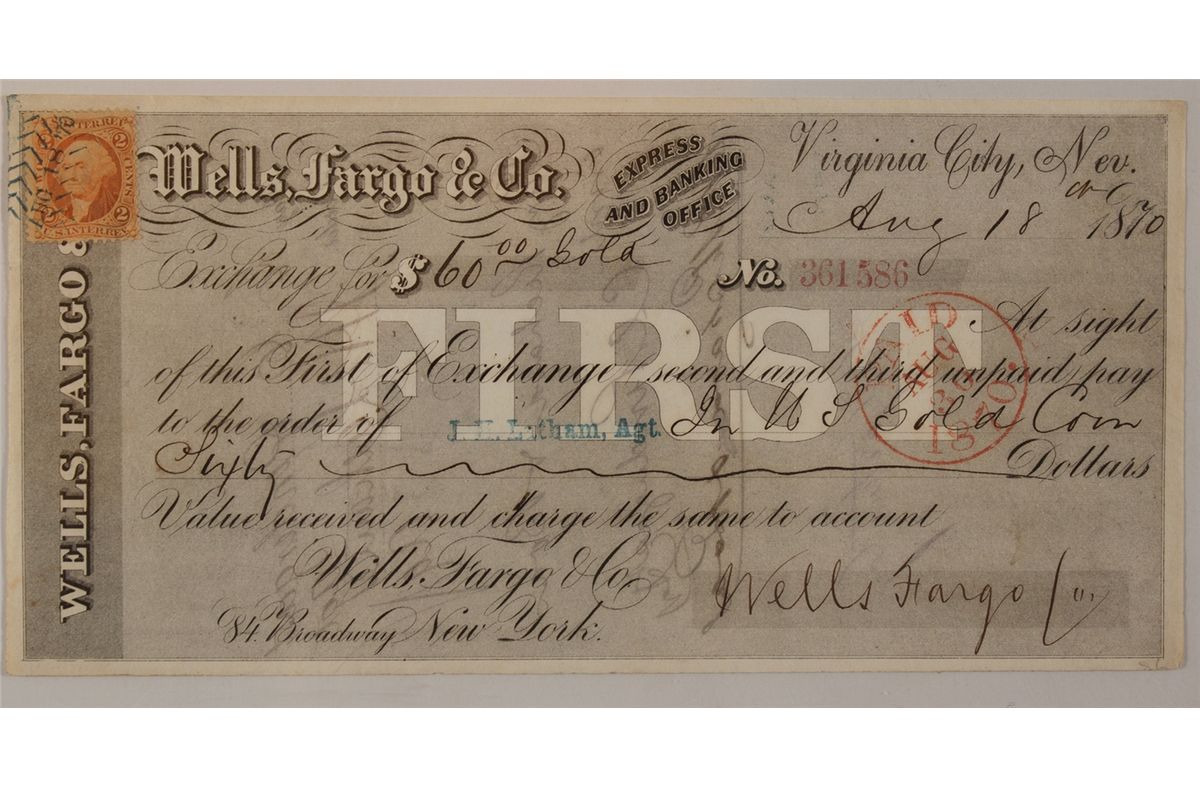 U.S. INTER. REV.
2 CENTS 2
U.S. INTER. REV.
WELLS, FARGO &
Wells, Fargo & Co.
EXPRESS
AND BANKING
OFFICE
Virginia City, Nev.
Aug 18 1870
Exchange for $ 60 00 Gold
No. 361586
FIRST
At sight
of this First of Exchange second and third unpaid pay
to the order of J. H. Latham, Agt. In U S Gold Coin
Sixty Dollars
PAID
AUG
1870.
Value received and charge the same to account
Wells, Fargo & Co
84 Broadway New York.
Wells Fargo